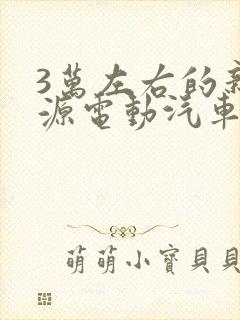 3萬左右的新
源電動汽車
萌萌小寶貝貝